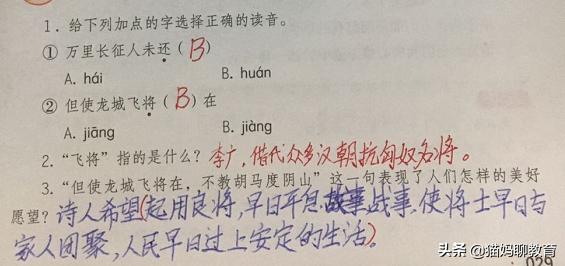 1. 给下列加点的字选择正确的读音。
① 万里长征人未还（B）
A. hái B. huán
② 但使龙城飞将（B）在
A. jiāng B. jiàng
2. “飞将”指的是什么？李广，借代众多汉朝抗匈奴名将。
3. “但使龙城飞将在，不教胡马度阴山”这一句表现了人们怎样的美好
愿望？诗人希望(起用良将,早日平息战事,使将士早日与
家人团聚,人民早日过上安定的生活)。
头条 @猫妈聊教育
029